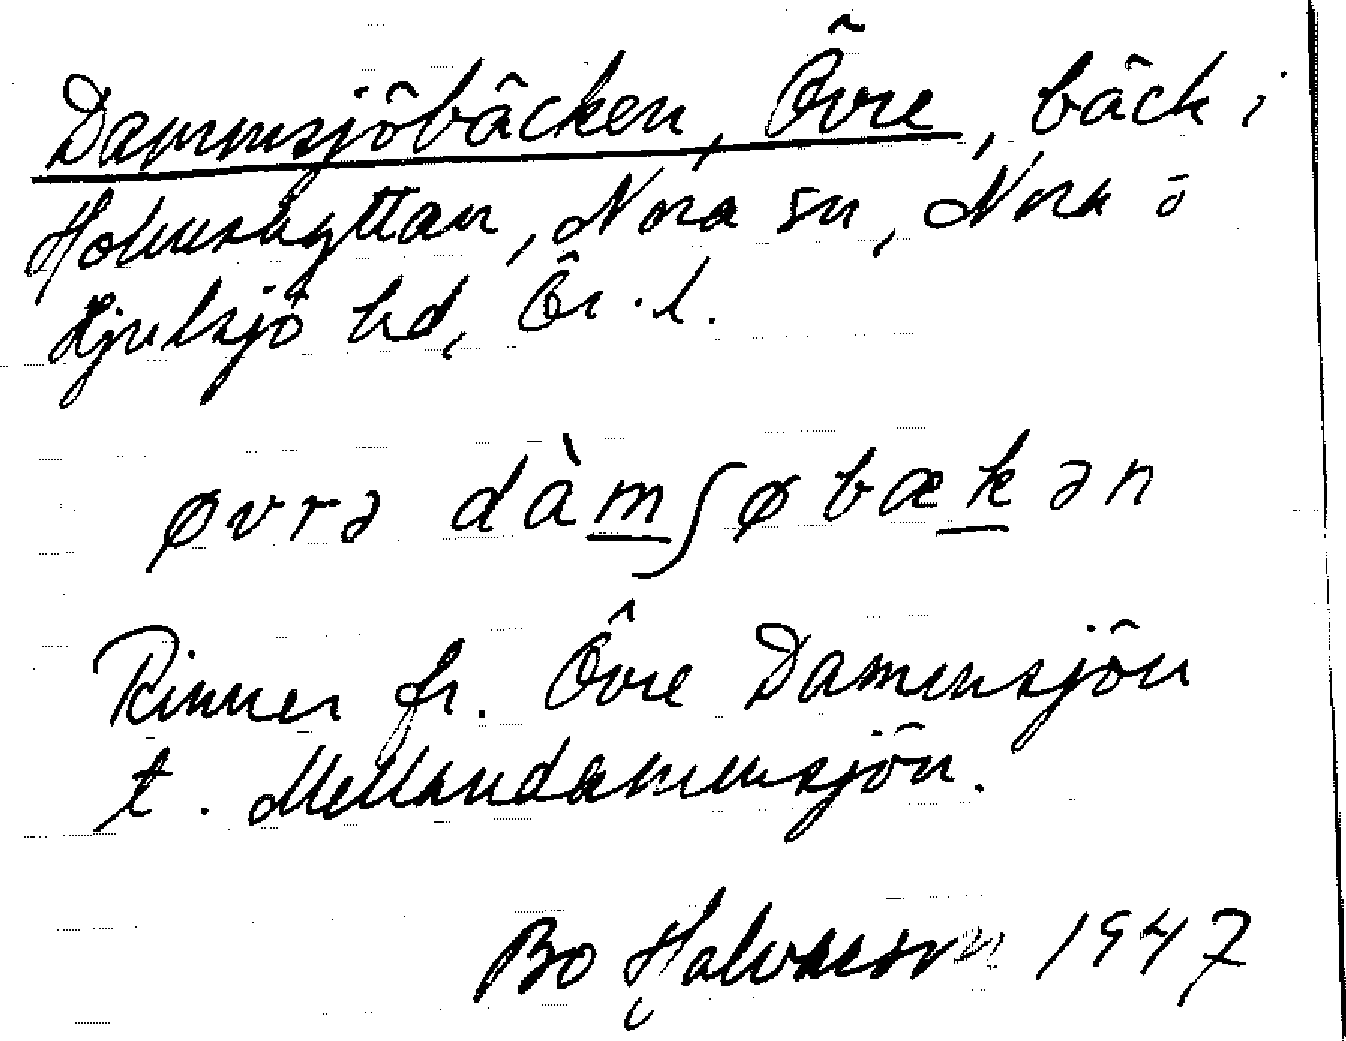 Dammsjöbäcken, Övre, bäck i
Holmshyttan, Nora sn, Nora o
Hjulsjö hd, Ör. l.
øvrə dàmʃøbækən
Rinner fr. Övre Dammsjön
t. Mellandammsjön.
Bo Halvarson 1947